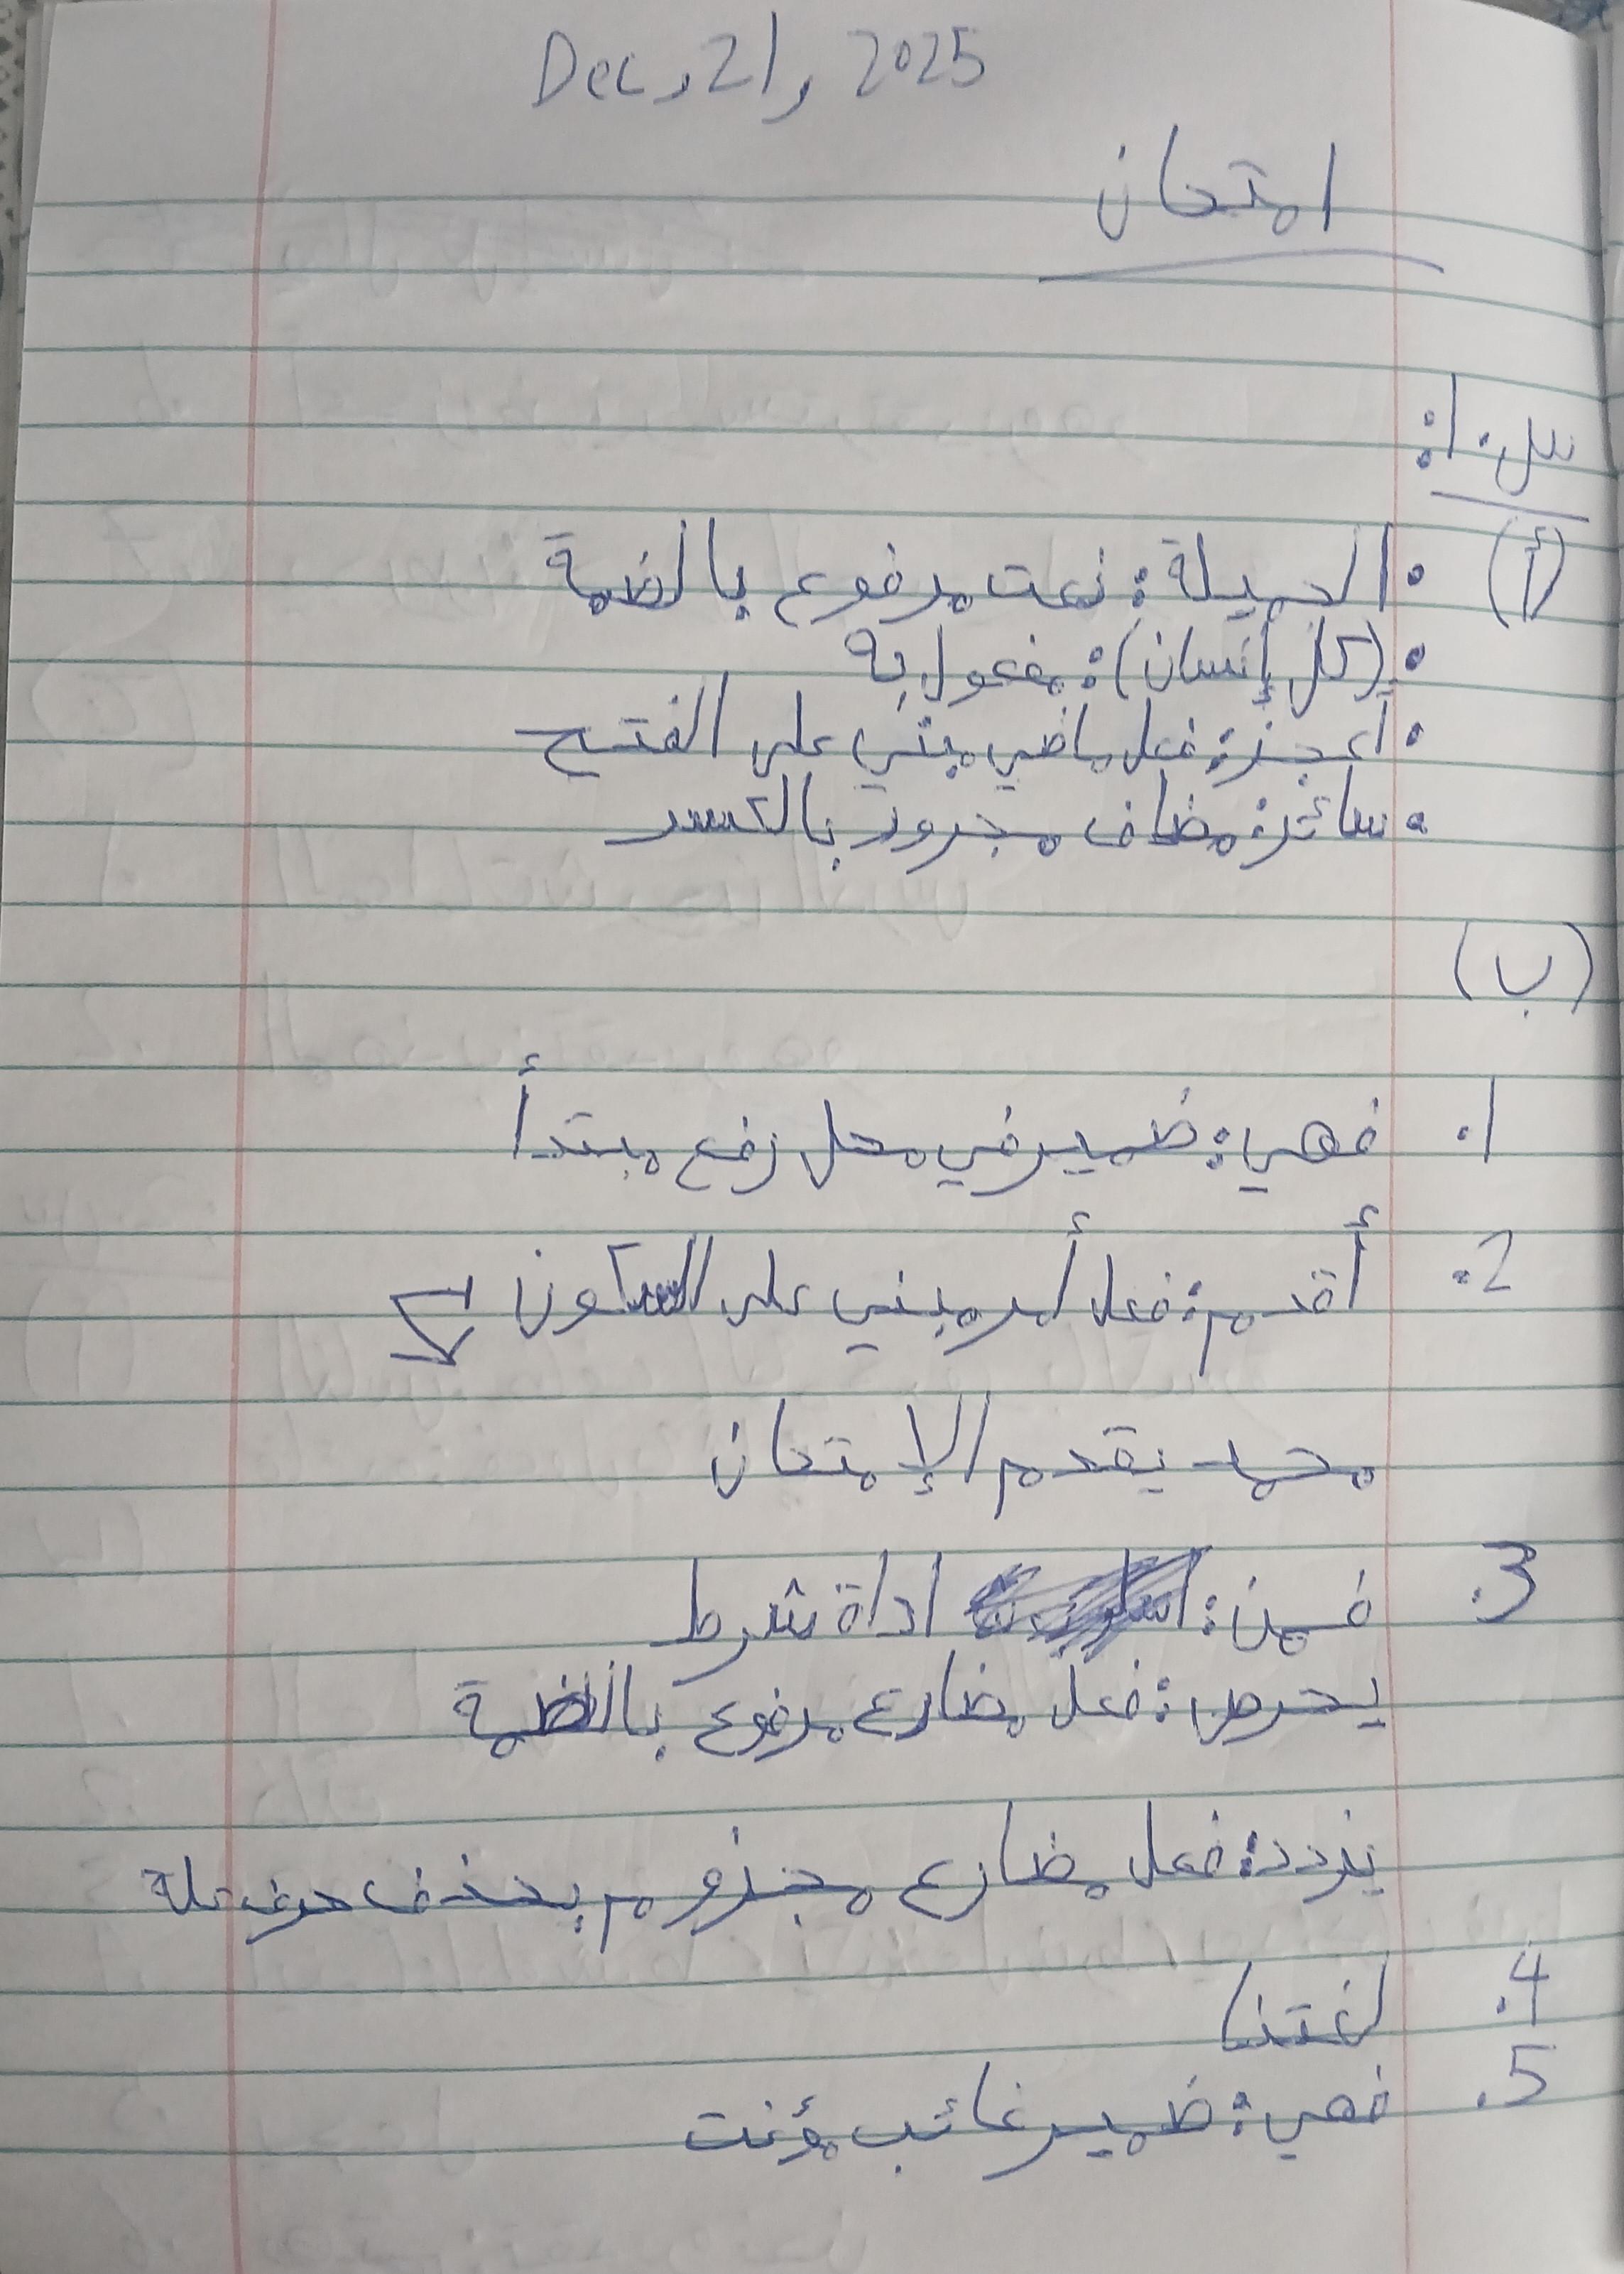 Dec, 21, 2025
امتحان
س.1:
(أ) • الجميلة: نعت مرفوع بالضمة
• (كل إنسان): مفعول به
• اعجز: فعل ماضي مبني على الفتح
• سائر: مضاف مجرور بالكسر
(ب)
1. فهي: ضمير في محل رفع مبتدأ
2. أقدم: فعل أمر مبني على السكون
محمد يقدم الإمتحان
3. فمن: اداة شرط
يحرص: فعل مضارع مرفوع بالضمة
يزدد: فعل مضارع مجزوم بحذف حرف علة
4. لغتنا
5. فهي: ضمير غائب مؤنت